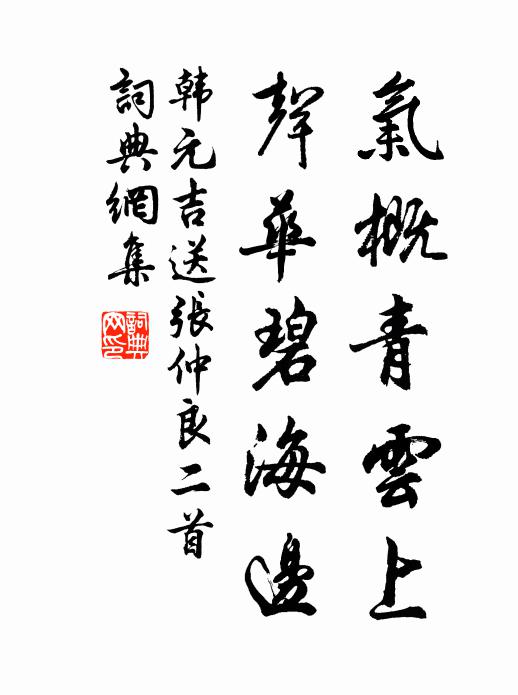 氣概青雲上
聲華碧海邊
韩元吉送張仲良二首
詞典網集
詞典網印